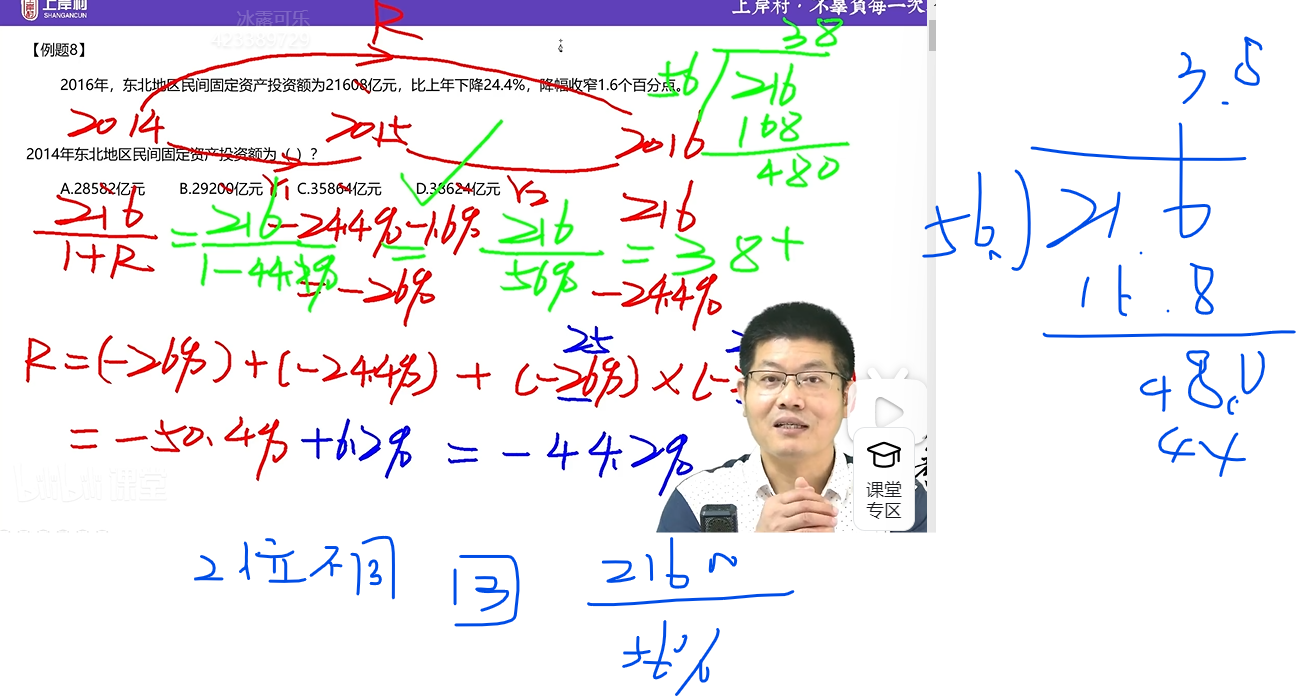 上岸村
SHANGCUN
冰露可乐
423389729
上岸村·不辜負每一次
【例题8】
2016年，东北地区民间固定资产投资额为21608亿元，比上年下降24.4%，降幅收窄1.6个百分点。
R
2014 2015 2016
2014年东北地区民间固定资产投资额为（ ）？
A.28582亿元 B.29200亿元 C.35864亿元 D.38624亿元
Y1 Y2
-24.4%-1.6% 216
= -26% -24.4%
216/1+R = 216/1-44.2% = 216/56% = 38+
38
56 216
168
480
25
R=(-26%)+(-24.4%)+(-26%)×(-
=-50.4%+6.2%=-44.2%
bilibili 课堂
课堂
专区
3.5
56.)21.6
16.8
48.0
44
2位不同 3
216
56%